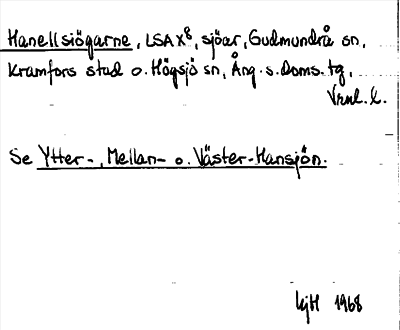 Hanellsiögarne, LSA X⁸, sjöar, Gudmundrå sn,
Kramfors stad o. Högsjö sn, Ång. s. Doms. tg,
Vrnl. l.
Se Ytter-, Mellan- o. Väster-Hansjön.
1968